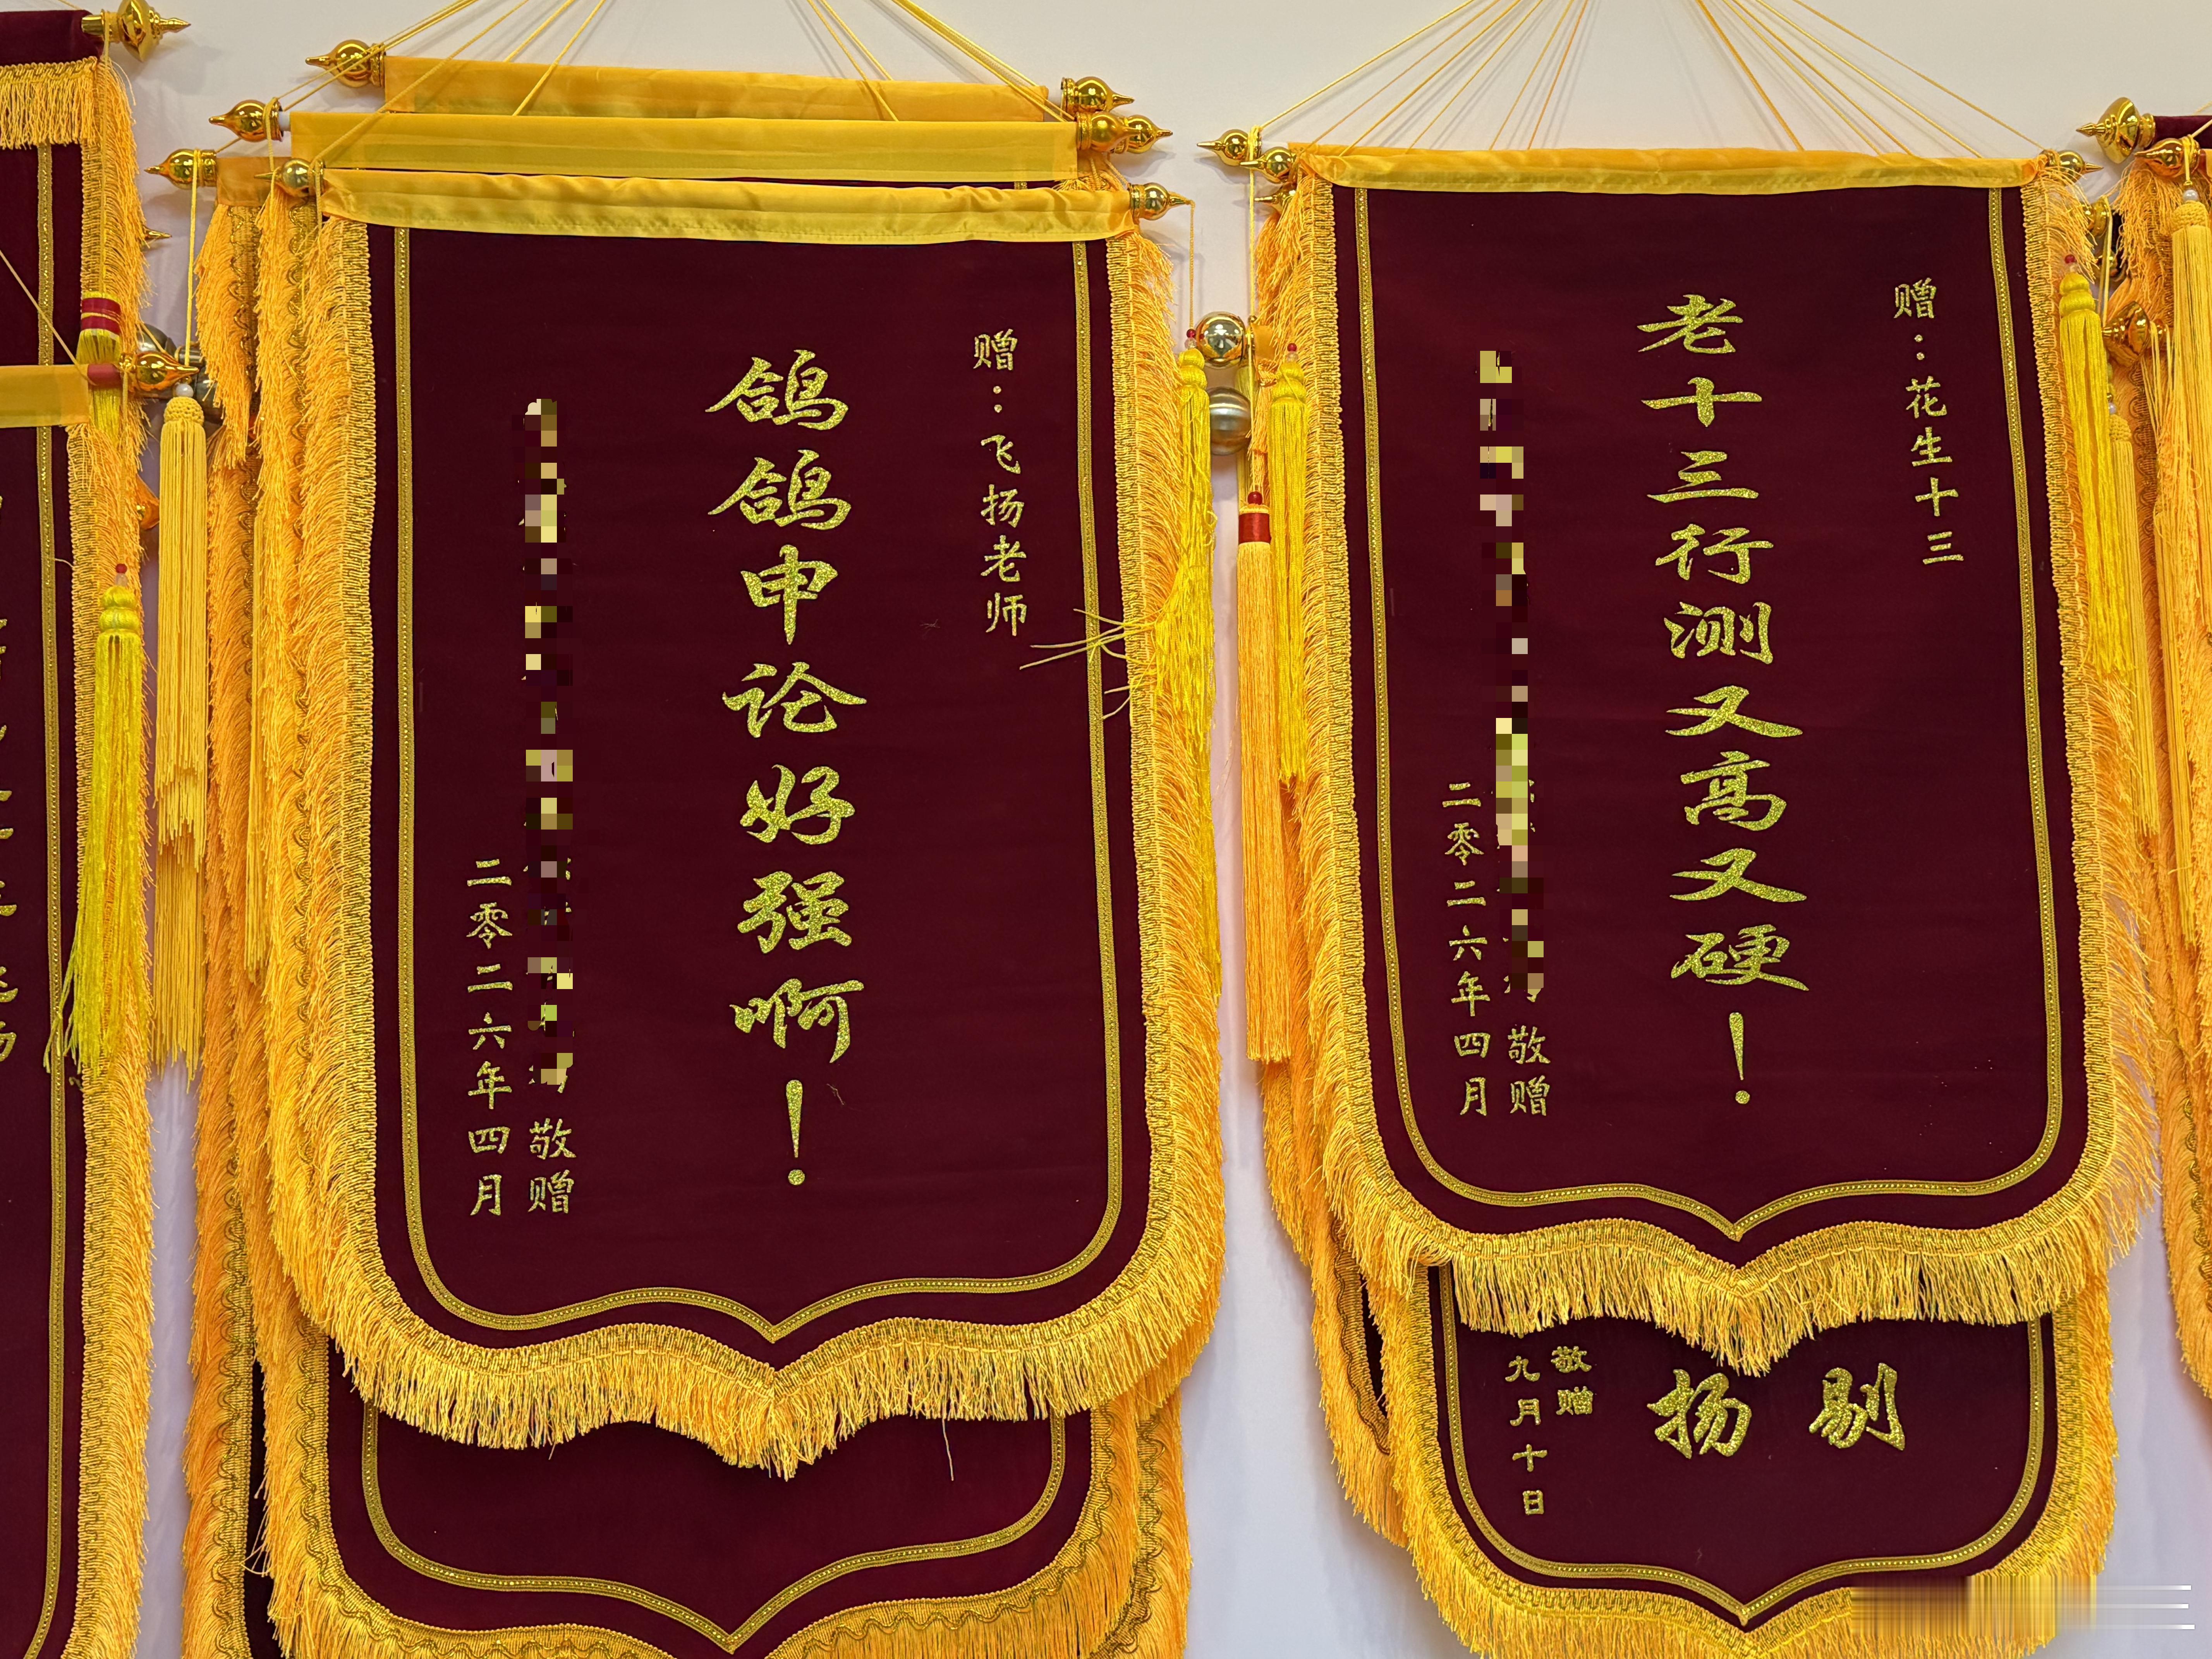 赠：飞扬老师
鸽鸽申论好强啊！
敬赠
二零二六年四月
赠：花生十三
老十三行测又高又硬！
敬赠
二零二六年四月
剔
扬
敬赠
九月十日